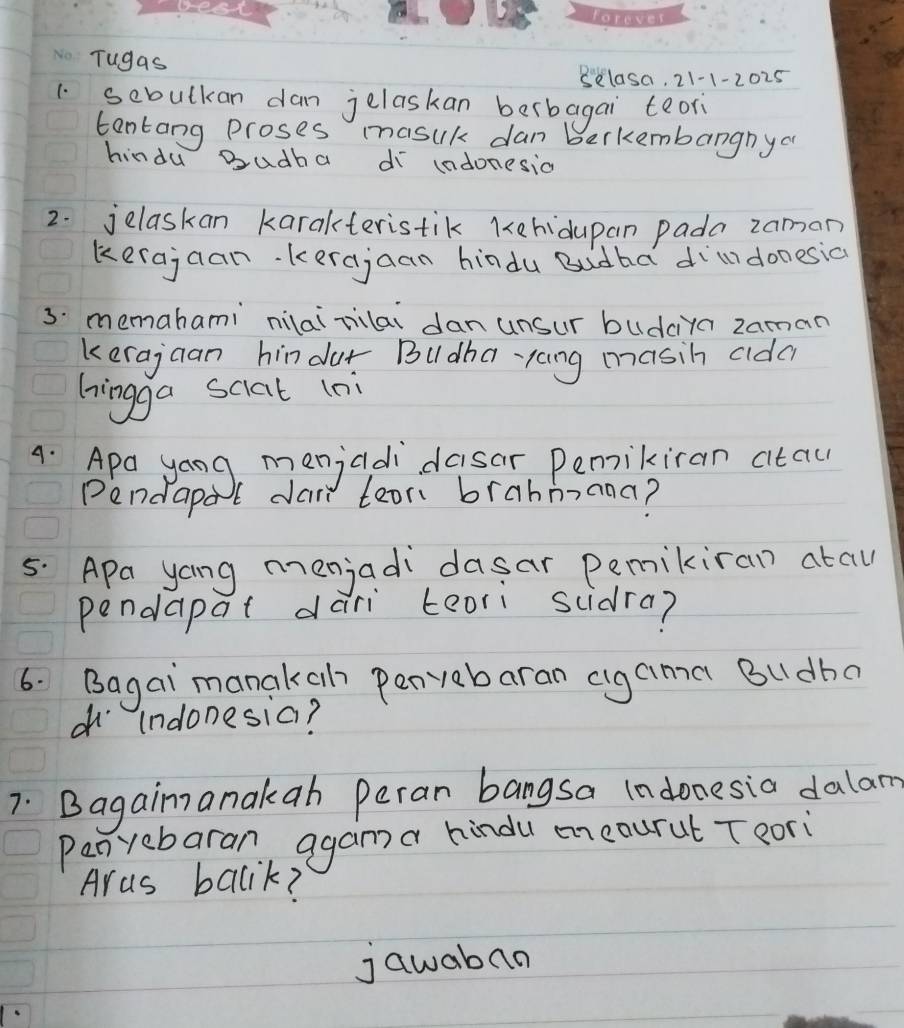 best
forever
No: Tugas
Date
Selasa. 21-1-2025
1. sebutkan dan jelaskan berbagai teori
tentang proses masuk dan berkembangnya
hindu Budha di indonesia
2. jelaskan karakteristik kehidupan pada zaman
kerajaan-kerajaan hindu Budha diindonesia
3. memahami nilai nilai dan unsur budaya zaman
kerajaan hindu Budha yang masih ada
hingga saat ini
4. Apa yang menjadi dasar pemikiran atau
Pendapat dari teori brahmana?
5. Apa yang menjadi dasar pemikiran atau
pendapat dari teori sudra?
6. Bagaimanakah penyebaran agama Budha
di indonesia?
7. Bagaimanakah peran bangsa indonesia dalam
penyebaran agama hindu menurut Teori
Arus balik?
jawaban
1.